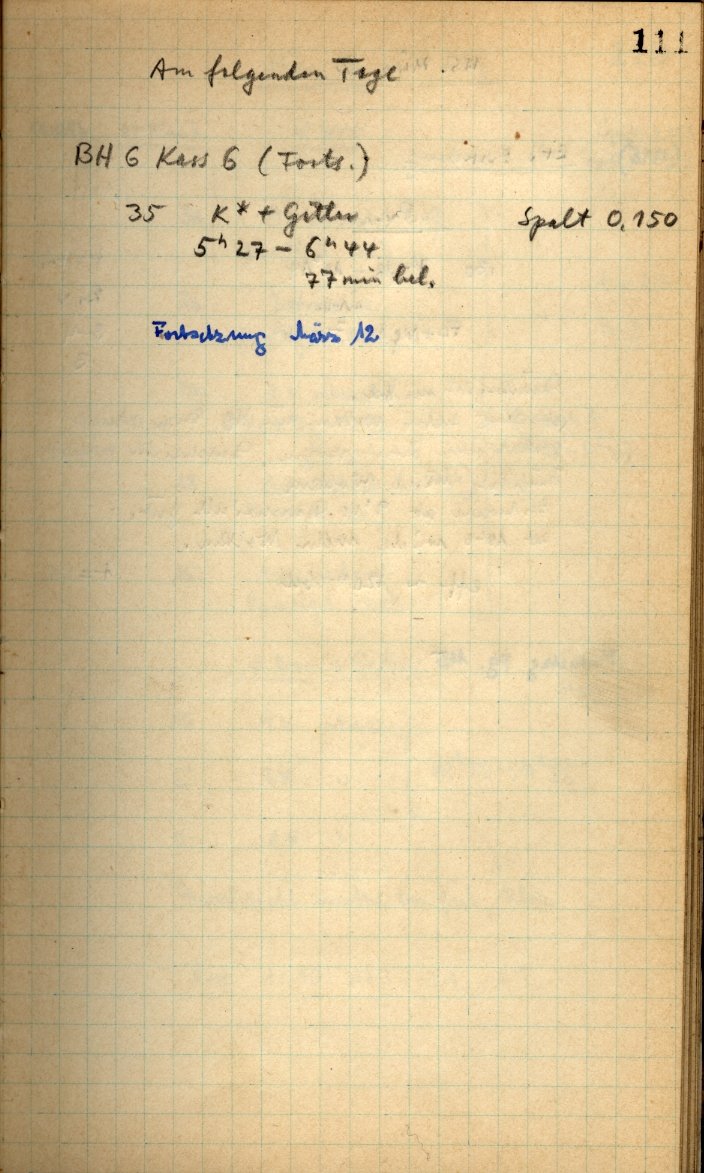 111
Am folgenden Tage
BH 6 Kass 6 (Forts.)
35 K* + Gitter Spalt 0,150
5ʰ 27 – 6ʰ 44
77 min bel.
Fortsetzung März 12